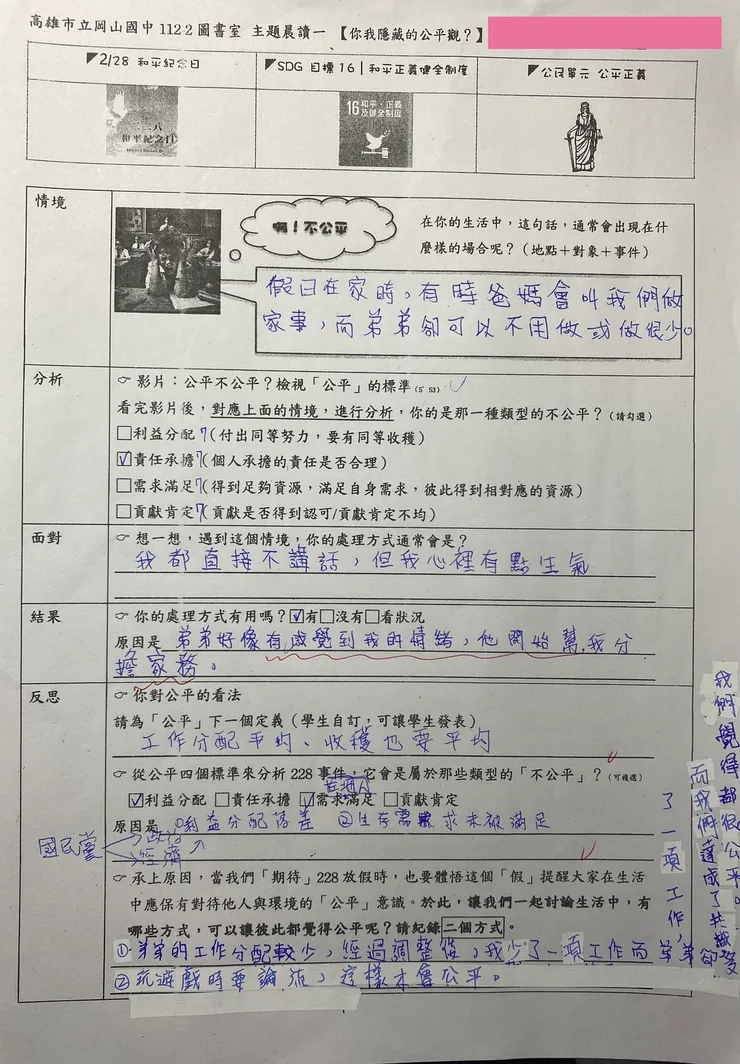 高雄市立岡山國中 112-2 圖書室 主題晨讀一 【你我隱藏的公平觀？】
2/28 和平紀念日
SDG 目標 16 | 和平正義健全制度
公民單元 公平正義
二八
和平紀念日
16 和平、正義
及健全制度
情境
啊！不公平
在你的生活中，這句話，通常會出現在什
麼樣的場合呢？（地點＋對象＋事件）
假日在家時，有時爸媽會叫我們做
家事，而弟弟卻可以不用做或做很少。
分析
☞ 影片：公平不公平？檢視「公平」的標準 (5' 53)
看完影片後，對應上面的情境，進行分析，你的是那一種類型的不公平？（請勾選）
□利益分配（付出同等努力，要有同等收穫）
☑責任承擔（個人承擔的責任是否合理）
□需求滿足（得到足夠資源，滿足自身需求，彼此得到相對應的資源）
□貢獻肯定（貢獻是否得到認可/貢獻肯定不均）
面對
☞ 想一想，遇到這個情境，你的處理方式通常會是？
我都直接不講話，但我心裡有點生氣
結果
☞ 你的處理方式有用嗎？☑有□沒有□看狀況
原因是 弟弟好像有感覺到我的情緒，他開始幫我分
擔家務。
反思
☞ 你對公平的看法
請為「公平」下一個定義（學生自訂，可讓學生發表）
工作分配平均、收穫也要平均
☞ 從公平四個標準來分析 228 事件，它會是屬於那些類型的「不公平」？（可複選）
☑利益分配 □責任承擔 ☑需求滿足 □貢獻肯定
原因是 ①利益分配落差 ②生存需求未被滿足
國民黨
政治
經濟
☞ 承上原因，當我們「期待」228 放假時，也要體悟這個「假」提醒大家在生活
中應保有對待他人與環境的「公平」意識。於此，讓我們一起討論生活中，有
哪些方式，可以讓彼此都覺得公平呢？請紀錄二個方式。
①弟弟的工作分配較少，經過調整後，我少了一項工作而弟弟卻多
了一項工作，
而我們達成了共識
我們覺得都很公平。
②玩遊戲時要輪流，這樣才會公平。